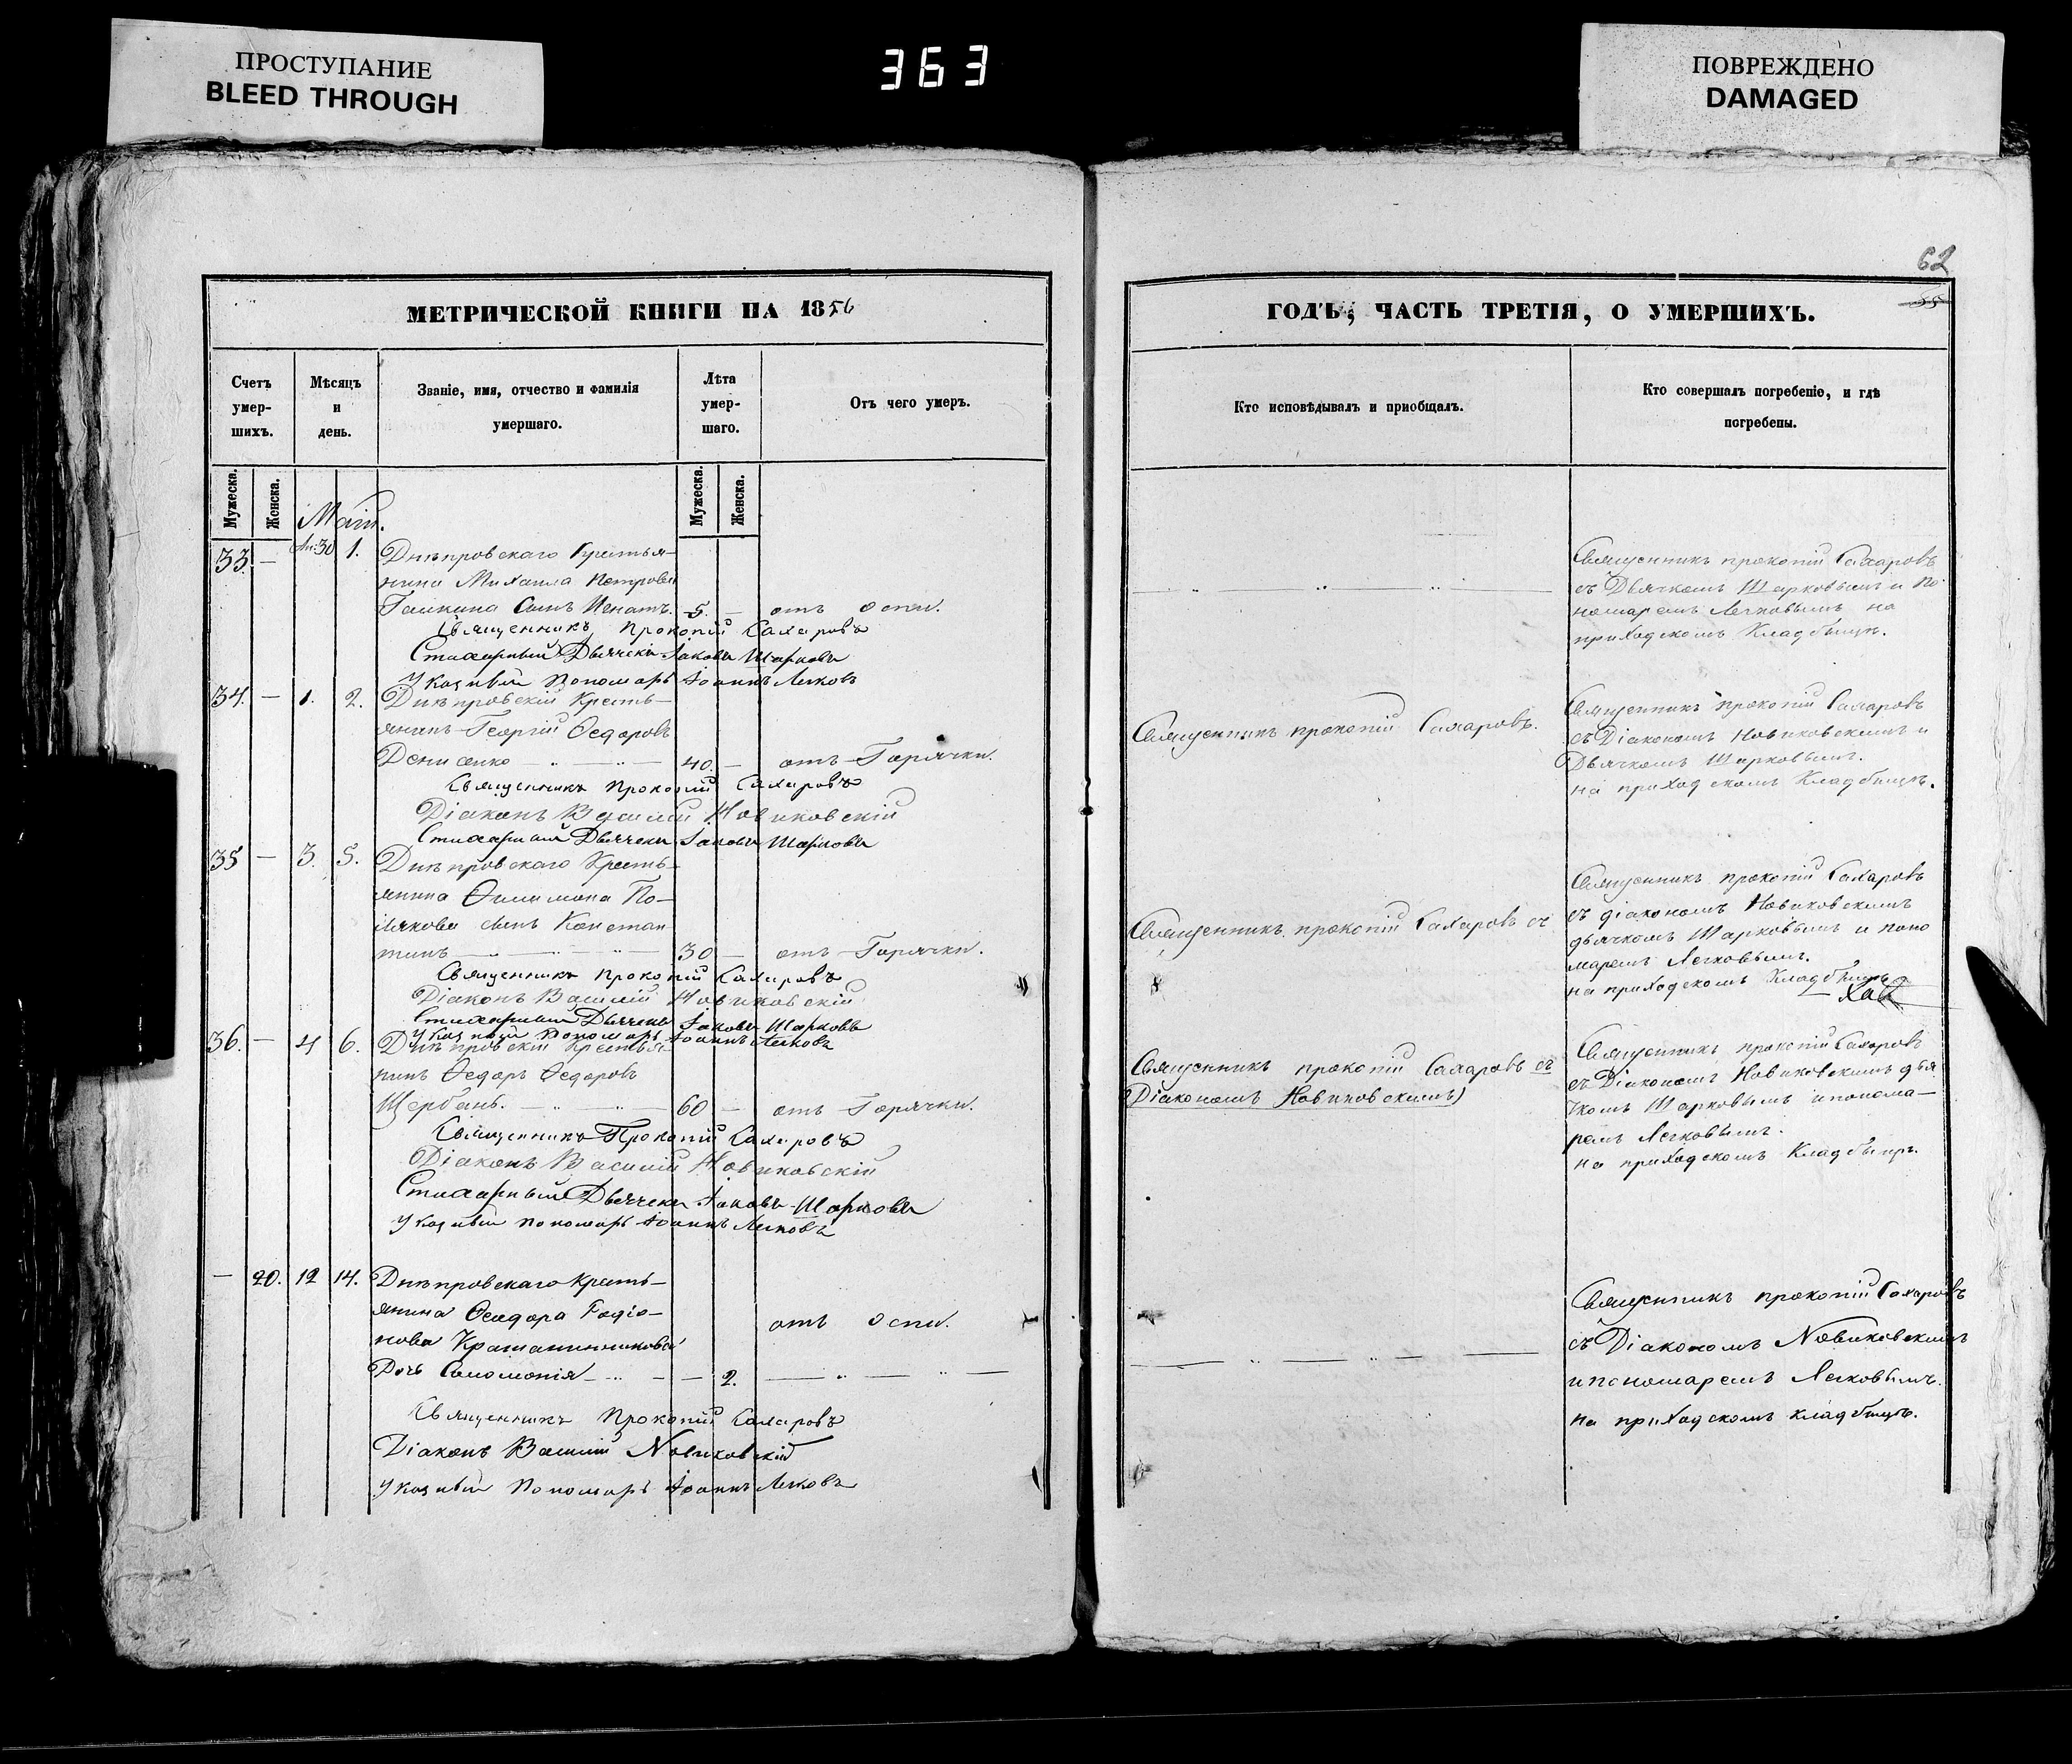 ПРОСТУПАНИЕ
BLEED THROUGH
363
ПОВРЕЖДЕНО
DAMAGED
МЕТРИЧЕСКОЙ КНИГИ НА 1856
Счетъ
умер-
шихъ.
Мѣсяцъ
и
день.
Званіе, имя, отчество и фамилія
умершаго.
Лѣта
умер-
шаго.
Отъ чего умеръ.
Мужеска.
Женска.
Мужеска.
Женска.
Маій.
33. — Ап: 30 1. Днѣпровскаго Крестья-
нина Михаила Петрова
Галкина Сынъ Игнатъ. 5. — отъ Оспы.
Священникъ Прокопій Сахаровъ
Стихарный Дьячекъ Іаковъ Шарковъ
Указный Пономарь Іоаннъ Легковъ
34. — 1. 2. Днѣпровскій Кресть-
янинъ Георгій Ѳедоровъ
Денисенко 40. — отъ Горячки.
Священникъ Прокопій Сахаровъ
Діаконъ Василій Новиковскій
Стихарный Дьячекъ Іаковъ Шарковъ
35 — 3. 5. Днѣпровскаго Кресть-
янина Филимона По-
лякова сынъ Констан-
тинъ 30 — отъ Горячки.
Священникъ Прокопій Сахаровъ
Діаконъ Василій Новиковскій
Стихарный Дьячекъ Іаковъ Шарковъ
Указный Пономарь Іоаннъ Легковъ
36. — 4 6. Днѣпровскій Крестья-
нинъ Ѳедоръ Ѳедоровъ
Щербань. 60 — отъ Горячки.
Священникъ Прокопій Сахаровъ
Діаконъ Василій Новиковскій
Стихарный Дьячекъ Іаковъ Шарковъ
Указный Пономарь Іоаннъ Легковъ
— 20. 12 14. Днѣпровскаго Кресть-
янина Ѳеодора Родіо-
нова
отъ Оспы.
Дочь Соломонія — 2.
Священникъ Прокопій Сахаровъ
Діаконъ Василій Новиковскій
Указный Пономарь Іоаннъ Легковъ
62
55
ГОДЪ, ЧАСТЬ ТРЕТІЯ, О УМЕРШИХЪ.
Кто исповѣдывалъ и пріобщалъ.
Кто совершалъ погребеніе, и гдѣ
погребены.
Священникъ прокопій Сахаровъ
съ Дьячкомъ Шарковымъ и По-
номаремъ Легковымъ на
приходскомъ Кладбищѣ.
Священникъ прокопій Сахаровъ.
Священникъ прокопій Сахаровъ
съ Діакономъ Новиковскимъ и
Дьячкомъ Шарковымъ.
на приходскомъ Кладбищѣ.
Священникъ прокопій Сахаровъ съ
Священникъ прокопій Сахаровъ
съ діакономъ Новиковскимъ
дьячкомъ Шарковымъ и поно
маремъ Легковымъ.
на приходскомъ Кладбищѣ
Священникъ прокопій Сахаровъ съ
Діакономъ Новиковскимъ
Священникъ прокопій Сахаровъ
съ Діакономъ Новиковскимъ дья
чкомъ Шарковымъ и понома-
ремъ Легковымъ.
на приходскомъ Кладбищѣ.
Священникъ прокопій Сахаровъ
съ Діакономъ Новиковскимъ
и пономаремъ Легковымъ.
на приходскомъ кладбищѣ.